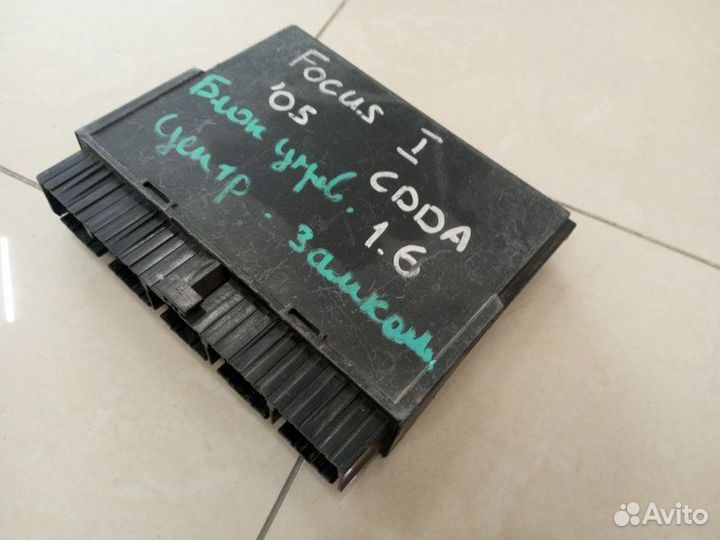 Focus I
'05 CDDA
1.6
Блок упр.
Центр. замком
Avito